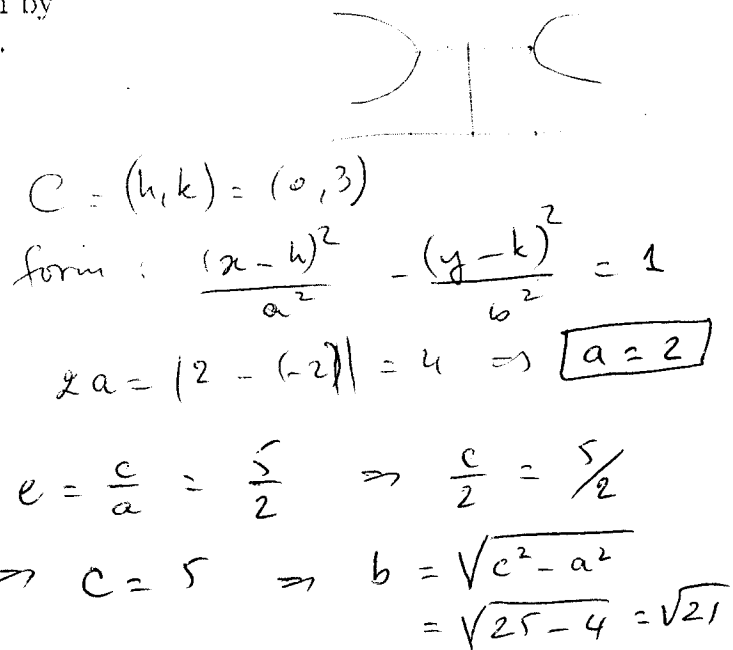 by
.
C = (h,k) = (0,3)
form : (x-h)²/a² - (y-k)²/b² = 1
2a = |2 - (-2)| = 4 ⇒ a = 2
e = c/a = 5/2 ⇒ c/2 = 5/2
⇒ C = 5 ⇒ b = √(c² - a²)
= √(25-4) = √21